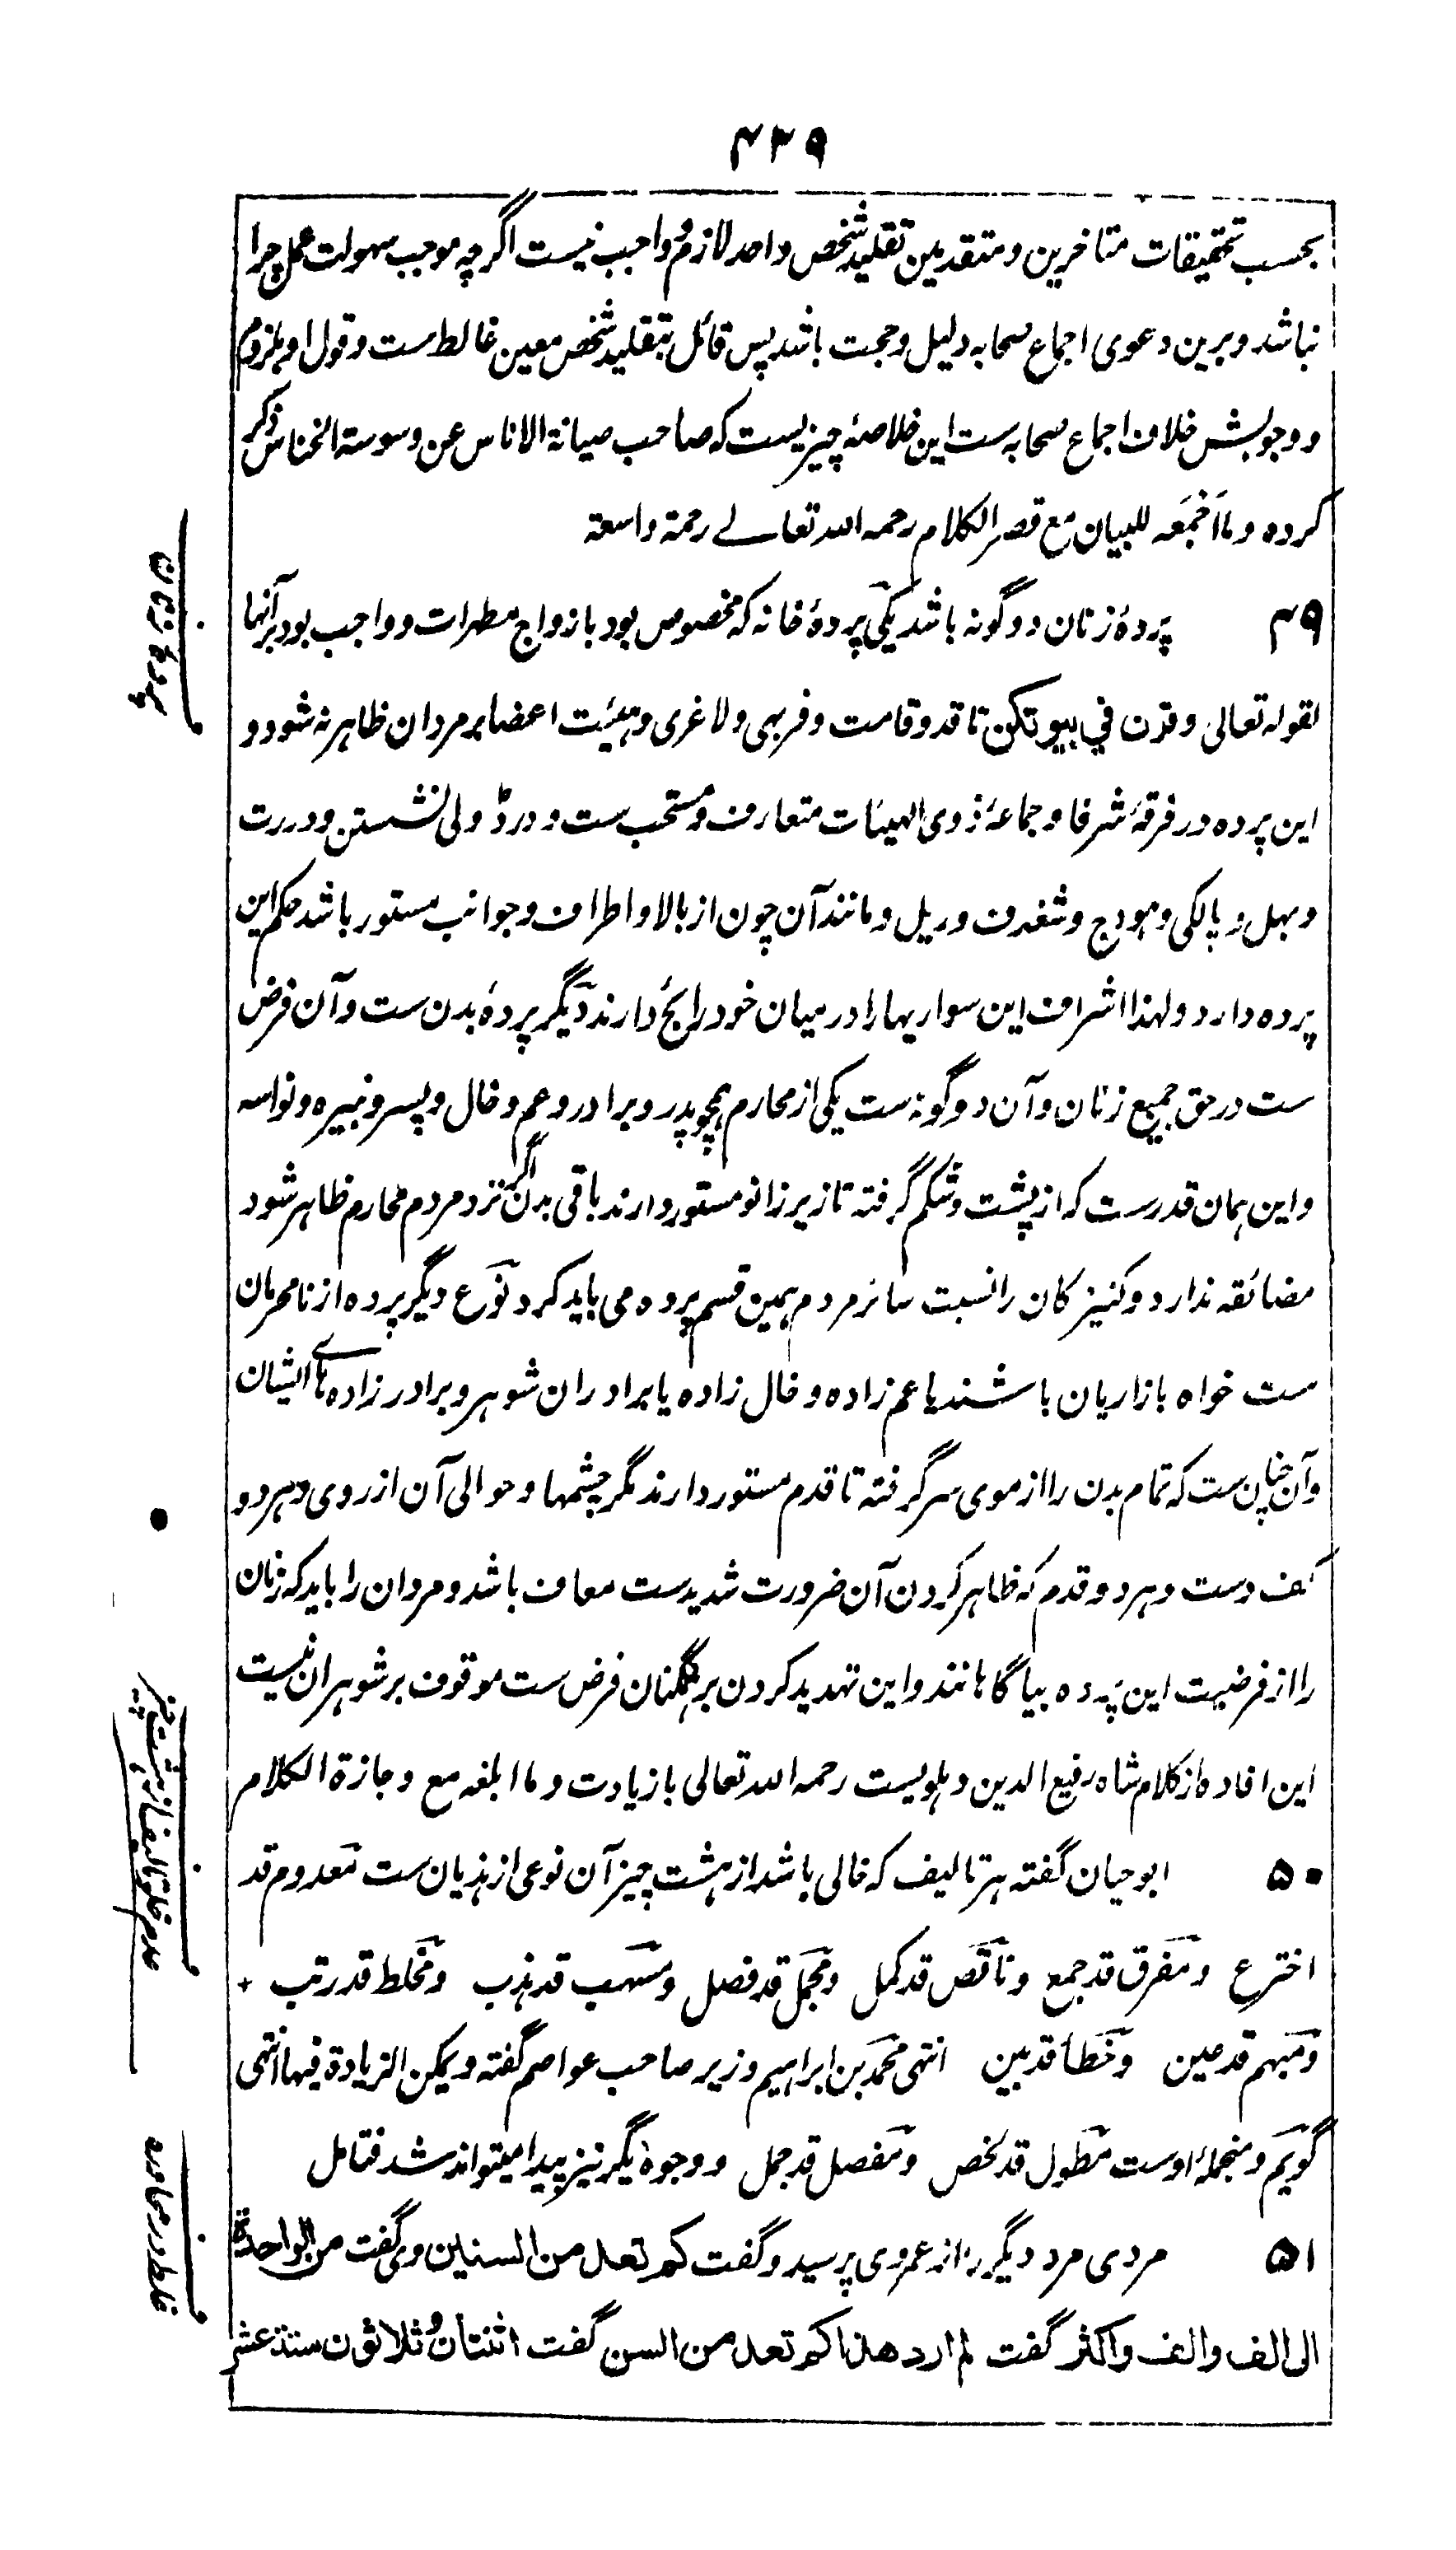 ۴۳۹
بحسب تحقیقات متاخرین و متقدمین تقلید شخص واحد لازم و واجب نیست اگرچه موجب سهولت عمل چرا
نباشد و برین دعوی اجماع صحابه دلیل و حجت باشد پس قائل بتقلید شخص معین غالط ست و قول او بلزوم
و وجوبش خلاف اجماع صحابه ست این خلاصۀ چیزیست که صاحب صیانة الاناس عن وسوسة الخناس ذکر
کرده و ما اجمعه للبیان مع قصر الکلام رحمه الله تعالے رحمة واسعة
پردۀ زنان
۴۹ پردۀ زنان دو گونه باشد یکی پردۀ خانه که مخصوص بود بازواج مطهرات و واجب بود بر آنها
لقوله تعالی وقرن في بیوتکن تا قد و قامت و فربهی و لاغری و هیئت اعضا بر مردان ظاهر نه شود و
این پرده در فرقۀ شرفا و جماعۀ ذوی الهیئات متعارف و مستحب ست و در ڈولی نشستن و در رت
و بهل و پالکی و هودج و شغدف و ریل و مانند آن چون از بالا و اطراف و جوانب مستور باشد حکم این
پرده دارد و لهذا اشراف این سواریها را در میان خود رایج دارند دیگر پردۀ بدن ست و آن فرض
ست در حق جمیع زنان و آن دو گونه ست یکی از محارم همچو پدر و برادر و عم و خال و پسر و نبیره و نواسه
و این همان قدرست که از پشت و شکم گرفته تا زیر زانو مستور دارند باقی بدن اگر نزد مردم محارم ظاهر شود
مضائقه ندارد و کنیزکان را نسبت سائر مردم همین قسم پرده می باید کرد نوع دیگر پرده از نامحرمان
ست خواه بازاریان باشند یا عم زاده و خال زاده یا برادران شوهر و برادر زاده های ایشان
و آن چنان ست که تمام بدن را از موی سر گرفته تا قدم مستور دارند مگر چشمها و حوالی آن از روی و هر دو
کف دست و هر دو قدم که ظاهر کردن آن ضرورت شدیدست معاف باشد و مردان را باید که زنان
را از فرضیت این پرده بیاگاهانند و این تهدید کردن بر همگنان فرض ست موقوف بر شوهران نیست
این افاده از کلام شاه رفیع الدین دهلویست رحمه الله تعالی با زیادت و ما ابلغه مع وجازة الکلام
عدم خلو تالیف از هشت چیز
۵۰ ابو حیان گفته هر تالیف که خالی باشد از هشت چیز آن نوعی از هذیان ست معدوم قد
اخترع ومفرق قد جمع وناقص قد کمل ومجمل قد فصل ومسهب قد هذب ومخلط قد رتب *
ومبهم قد عین وخطأ قد بین انتهی محمد بن ابراهیم وزیر صاحب عواصم گفته ویمکن الزیادة فیها انتهی
گویم و منجملۀ اوست مطول قد لخص ومفصل قد جمل و وجوه دیگر نیز پیدا میتواند شد فتامل
غلط در محاوره
۵۱ مردی مرد دیگر را از عمر وی پرسید و گفت کم تعد من السنین وی گفت من الواحدة
الی الف والف واکثر گفت لم ارد هذا کم تعد من السن گفت اثنتان وثلاثون ستة عشر